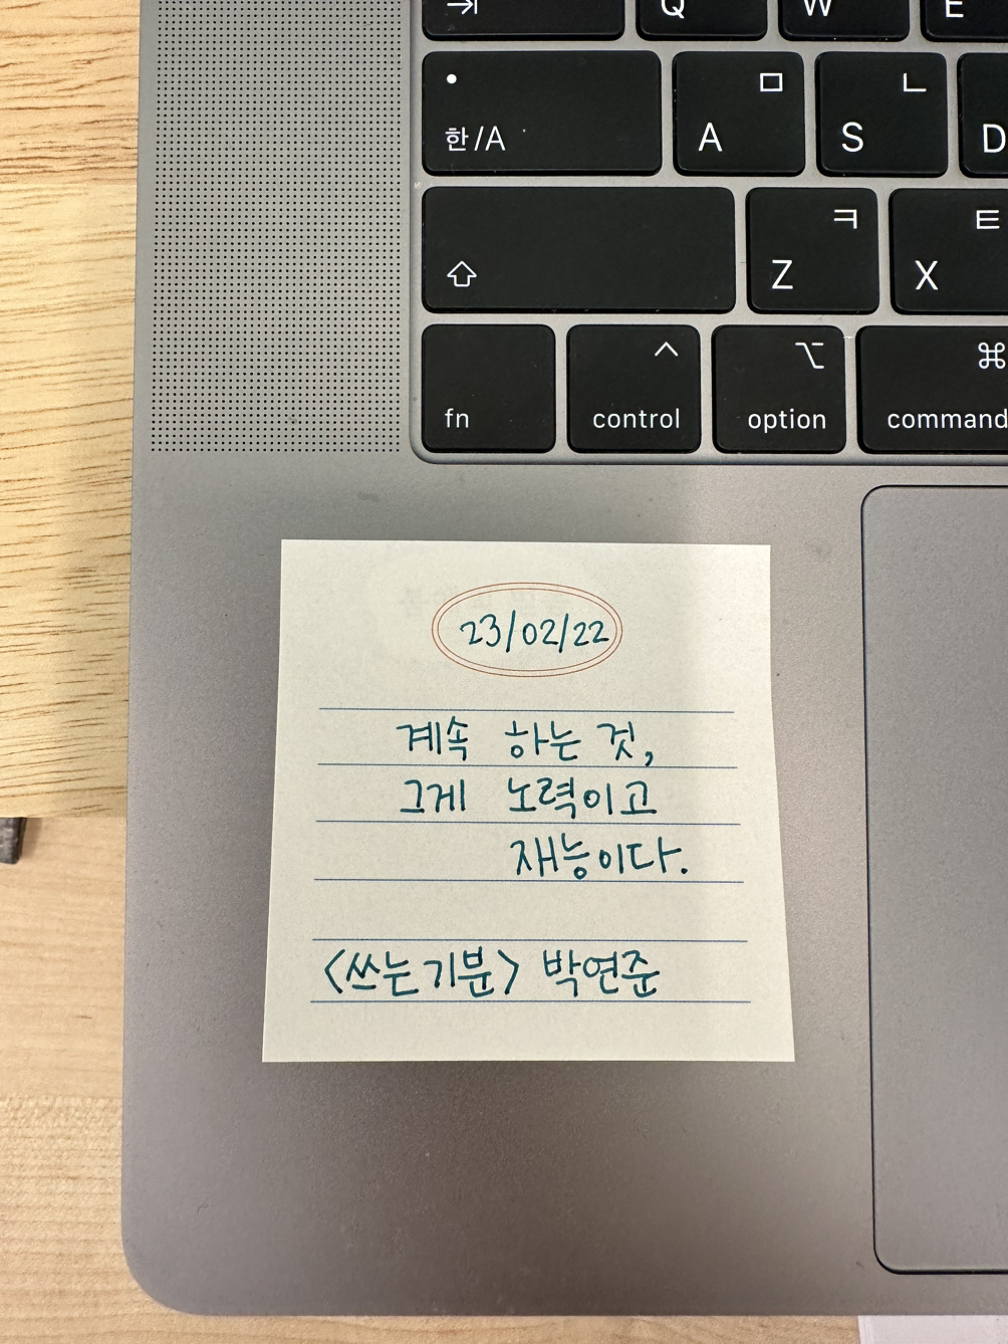 Q W E
ㅁ ㄴ
한/A A S D
ㅋ ㅌ
Z X
fn control option command
23/02/22
계속 하는 것,
그게 노력이고
재능이다.
<쓰는기분> 박연준